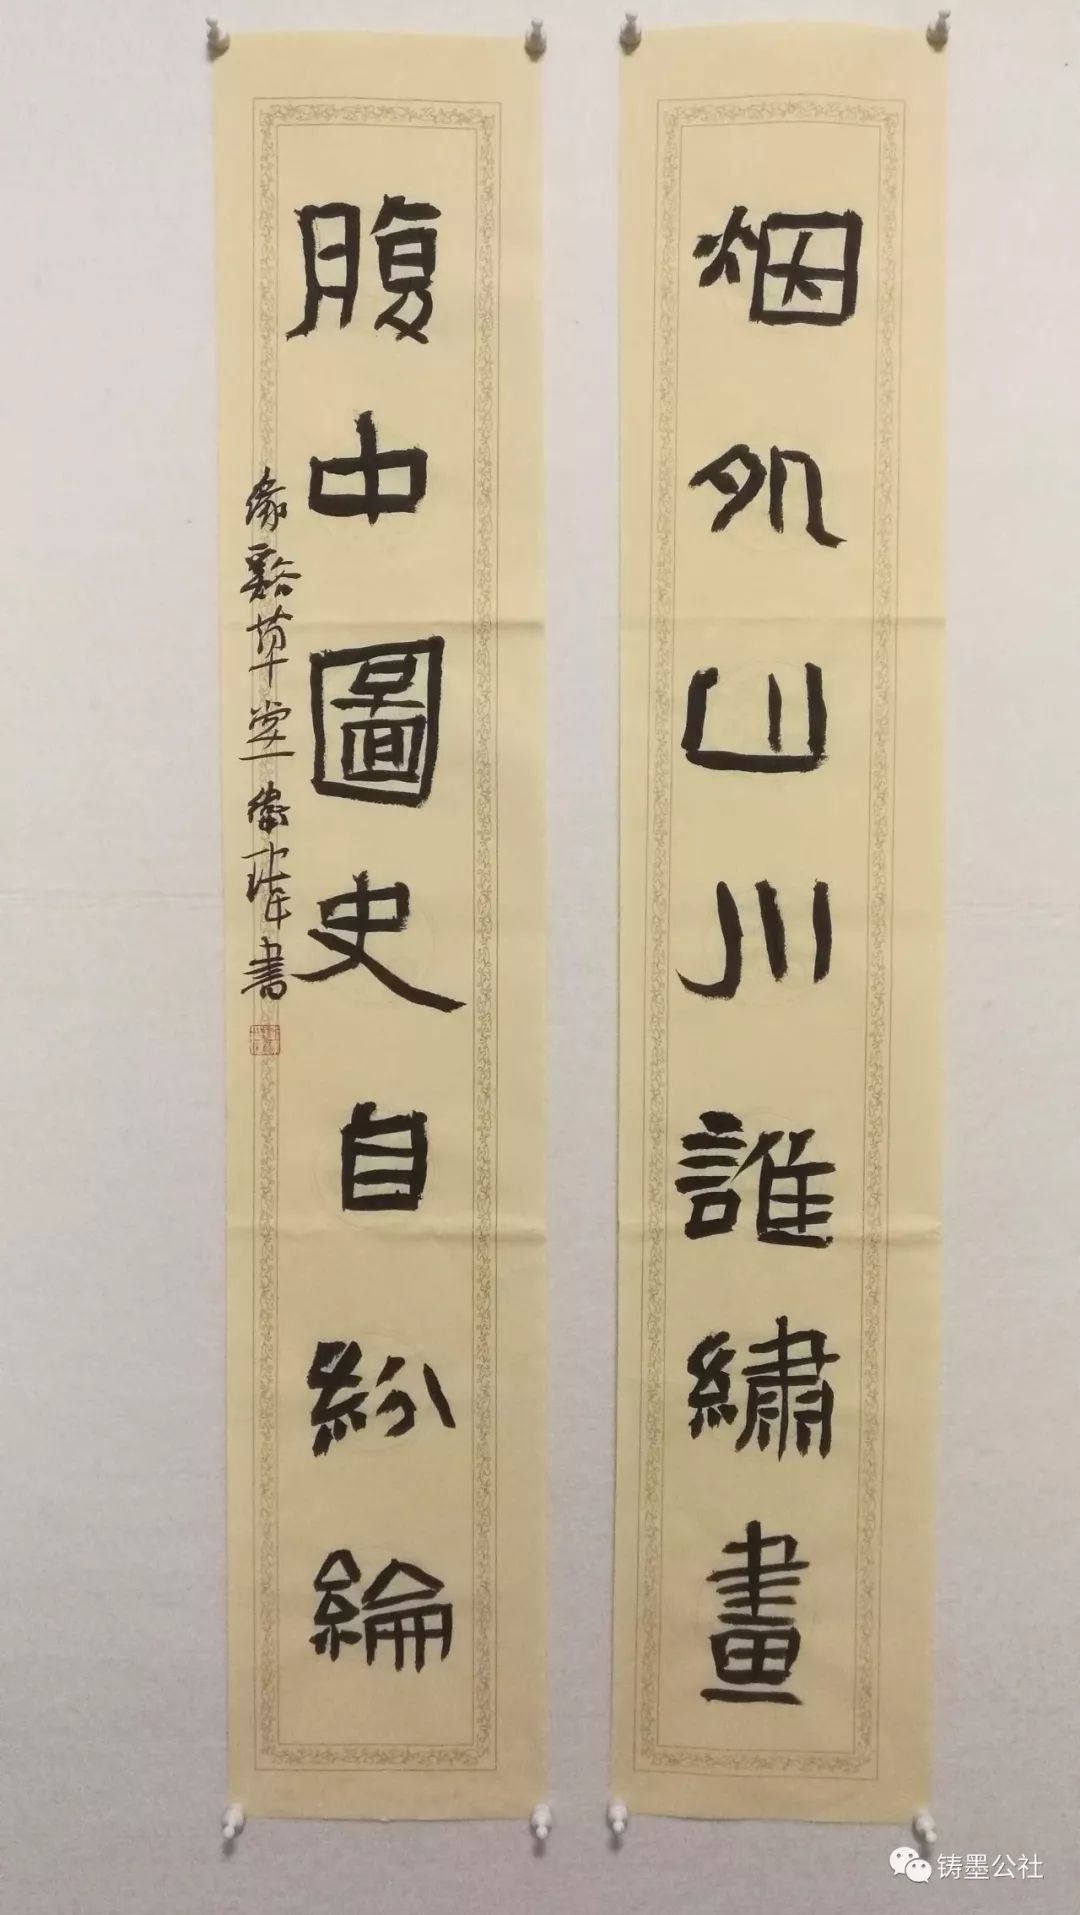 烟外山川誰繡畫
腹中圖史自紛綸
草堂
書
铸墨公社